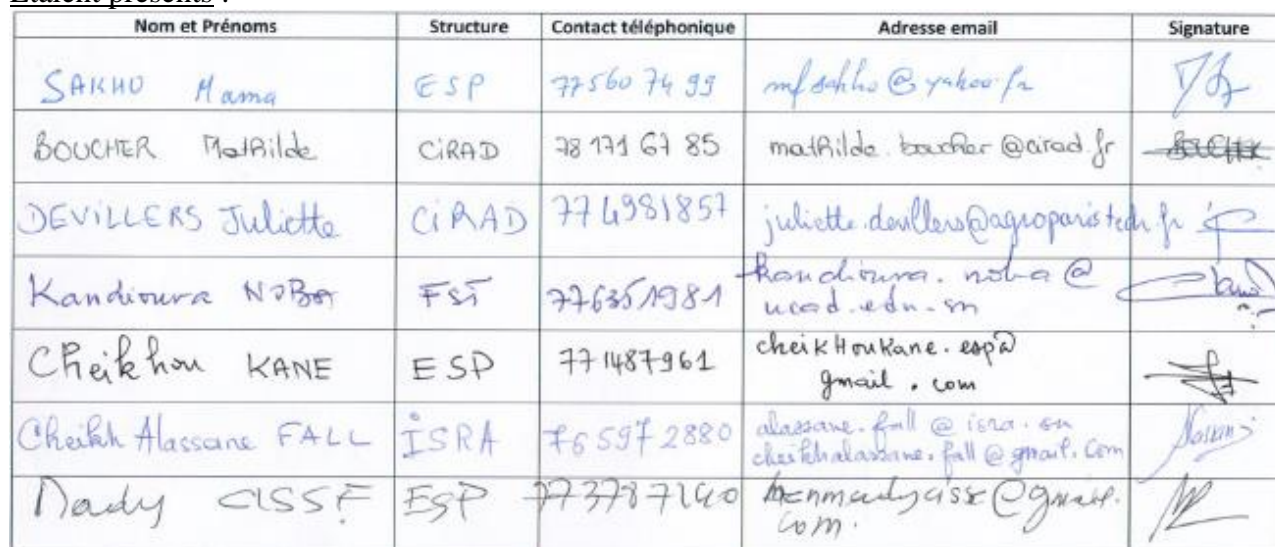 Etaient présents :
Nom et Prénoms Structure Contact téléphonique Adresse email Signature
SAKHO Mama ESP 77 560 74 99 mfsakho@yahoo.fr
BOUCHER Mathilde CIRAD 78 171 67 85 mathilde.boucher@cirad.fr BOUCHER
DEVILLERS Juliette CIRAD 77 4981857 juliette.devillers@agroparistech.fr
Kandioura NOBA FST 776351981 kandioura.noba@
ucad.edu.sn
Cheikhou KANE ESP 771487961 cheikHouKane.esp@
gmail.com
Cheikh Alassane FALL ISRA 76 597 2880 alassane.fall@isra.sn
cheikhalassane.fall@gmail.com
Mady CISSE ESP 773787140 @gmail.
com.